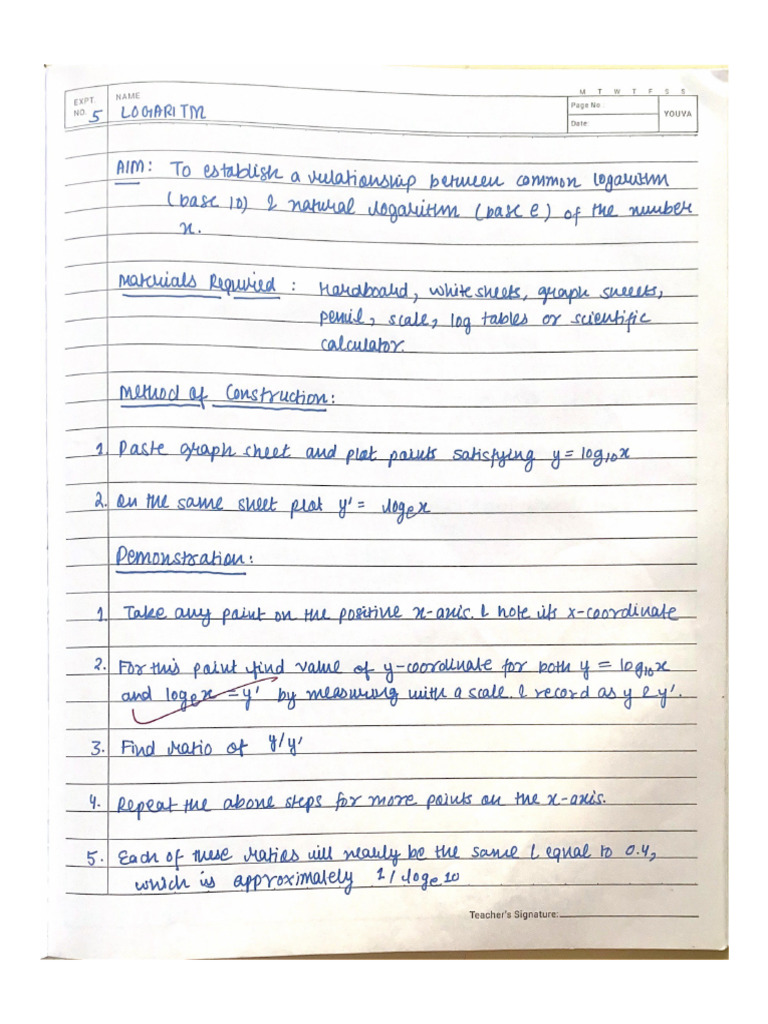 M T W T F S S
EXPT. NO. 5 NAME LOGARITM Page No: YOUVA
Date:
AIM: To establish a relationship between common logarithm
(base 10) & natural logarithm (base e) of the number
x.
Materials Required : Hardboard, white sheets, graph sheets,
pencil, scale, log tables or scientific
calculator.
Method of Construction:
1. Paste graph sheet and plot points satisfying y = log₁₀x
2. On the same sheet plot y' = logₑx
Demonstration:
1. Take any point on the positive x-axis. & note its x-coordinate
2. For this point find value of y-coordinate for both y = log₁₀x
and logₑx = y' by measuring with a scale. & record as y & y'.
3. Find ratio of y/y'
4. Repeat the above steps for more points on the x-axis.
5. Each of these ratios will nearly be the same & equal to 0.4,
which is approximately 1/logₑ10
Teacher's Signature: